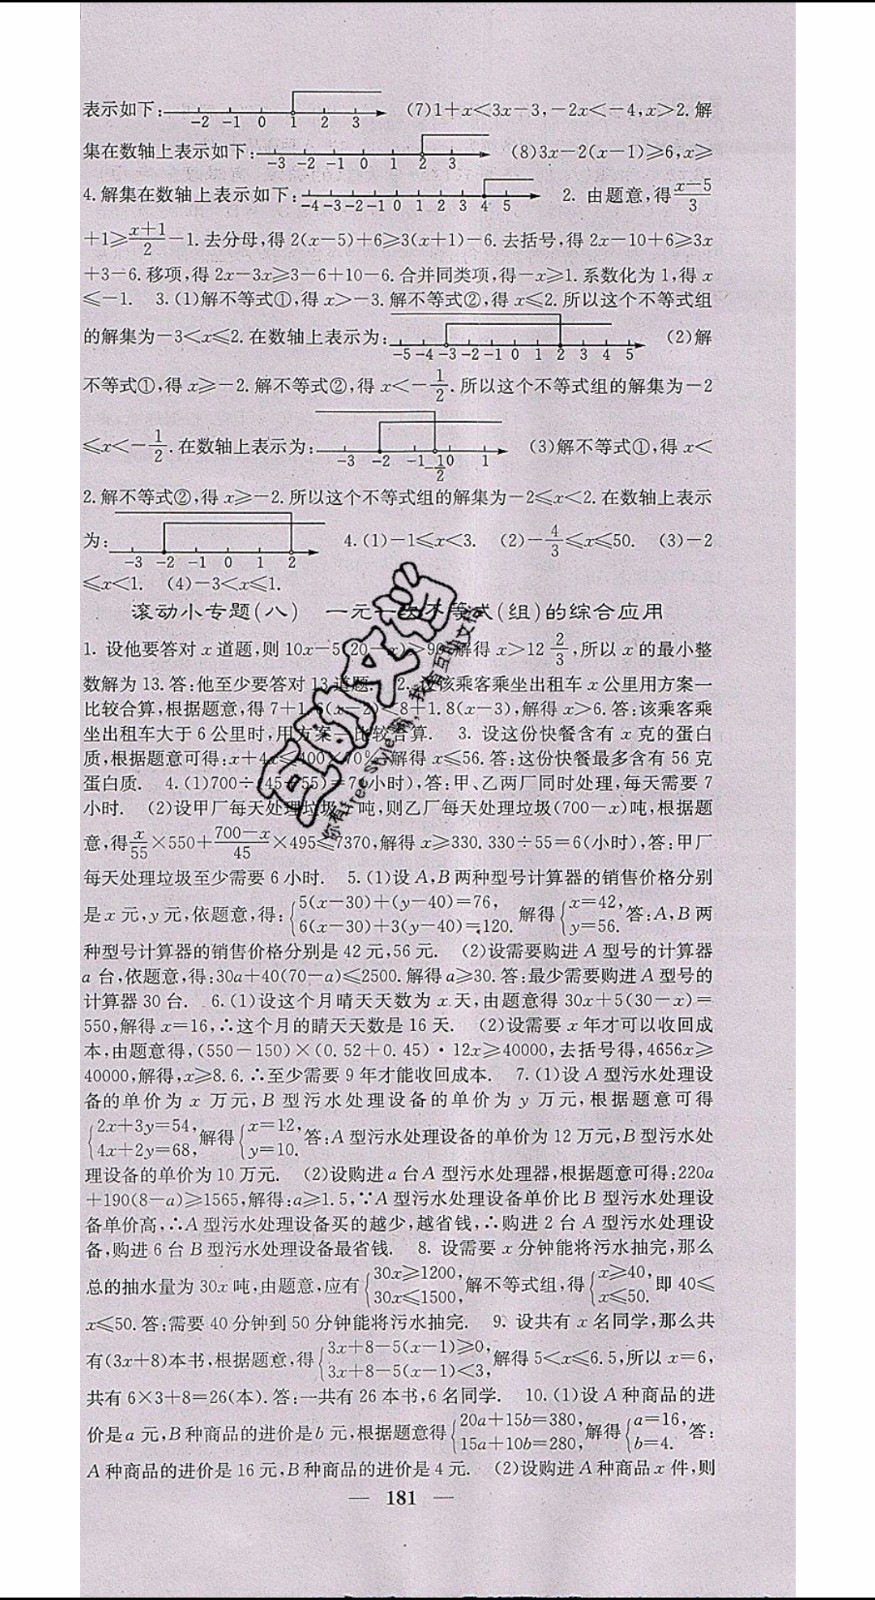 表示如下: -2 -1 0 1 2 3 (7)1+x<3x-3,-2x<-4,x>2.解
集在数轴上表示如下: -3 -2 -1 0 1 2 3 (8)3x-2(x-1)≥6,x≥
4.解集在数轴上表示如下: -4 -3 -2 -1 0 1 2 3 4 5 2. 由题意,得(x-5)/3
+1≥(x+1)/2-1.去分母,得2(x-5)+6≥3(x+1)-6.去括号,得2x-10+6≥3x
+3-6.移项,得2x-3x≥3-6+10-6.合并同类项,得-x≥1.系数化为1,得x
≤-1. 3.(1)解不等式①,得x>-3.解不等式②,得x≤2.所以这个不等式组
的解集为-3<x≤2.在数轴上表示为: -5 -4 -3 -2 -1 0 1 2 3 4 5 (2)解
不等式①,得x≥-2.解不等式②,得x<-1/2.所以这个不等式组的解集为-2
≤x<-1/2.在数轴上表示为: -3 -2 -1 -1/2 0 1 (3)解不等式①,得x<
2.解不等式②,得x≥-2.所以这个不等式组的解集为-2≤x<2.在数轴上表示
为: -3 -2 -1 0 1 2 4.(1)-1≤x<3. (2)-4/3≤x≤50. (3)-2
≤x<1. (4)-3<x≤1.
滚动小专题(八) 一元一次不等式(组)的综合应用
1. 设他要答对x道题,则10x-5(20-x)>90,解得x>12 2/3,所以x的最小整
数解为13.答:他至少要答对13道题. 2. 该乘客乘坐出租车x公里用方案一
比较合算,根据题意,得7+1. (x-2)<8+1.8(x-3),解得x>6.答:该乘客乘
坐出租车大于6公里时,用方案一比较合算. 3. 设这份快餐含有x克的蛋白
质,根据题意可得:x+4x≤400×70%,解得x≤56.答:这份快餐最多含有56克
蛋白质. 4.(1)700÷(45+55)=7(小时),答:甲、乙两厂同时处理,每天需要7
小时. (2)设甲厂每天处理垃圾x吨,则乙厂每天处理垃圾(700-x)吨,根据题
意,得x/55×550+(700-x)/45×495≤7370,解得x≥330.330÷55=6(小时),答:甲厂
每天处理垃圾至少需要6小时. 5.(1)设A,B两种型号计算器的销售价格分别
是x元,y元,依题意,得:{5(x-30)+(y-40)=76, 6(x-30)+3(y-40)=120. 解得{x=42, y=56. 答:A,B两
种型号计算器的销售价格分别是42元,56元. (2)设需要购进A型号的计算器
a台,依题意,得:30a+40(70-a)≤2500.解得a≥30.答:最少需要购进A型号的
计算器30台. 6.(1)设这个月晴天天数为x天,由题意得30x+5(30-x)=
550,解得x=16,∴这个月的晴天天数是16天. (2)设需要x年才可以收回成
本,由题意得,(550-150)×(0.52+0.45)·12x≥40000,去括号得,4656x≥
40000,解得,x≥8.6.∴至少需要9年才能收回成本. 7.(1)设A型污水处理设
备的单价为x万元,B型污水处理设备的单价为y万元,根据题意可得
{2x+3y=54, 4x+2y=68, 解得{x=12, y=10. 答:A型污水处理设备的单价为12万元,B型污水处
理设备的单价为10万元. (2)设购进a台A型污水处理器,根据题意可得:220a
+190(8-a)≥1565,解得:a≥1.5,∵A型污水处理设备单价比B型污水处理设
备单价高,∴A型污水处理设备买的越少,越省钱,∴购进2台A型污水处理设
备,购进6台B型污水处理设备最省钱. 8. 设需要x分钟能将污水抽完,那么
总的抽水量为30x吨,由题意,应有{30x≥1200, 30x≤1500, 解不等式组,得{x≥40, x≤50. 即40≤
x≤50.答:需要40分钟到50分钟能将污水抽完. 9. 设共有x名同学,那么共
有(3x+8)本书,根据题意,得{3x+8-5(x-1)≥0, 3x+8-5(x-1)<3, 解得5<x≤6.5,所以x=6,
共有6×3+8=26(本).答:一共有26本书,6名同学. 10.(1)设A种商品的进
价是a元,B种商品的进价是b元,根据题意得{20a+15b=380, 15a+10b=280, 解得{a=16, b=4. 答:
A种商品的进价是16元,B种商品的进价是4元. (2)设购进A种商品x件,则
— 181 —